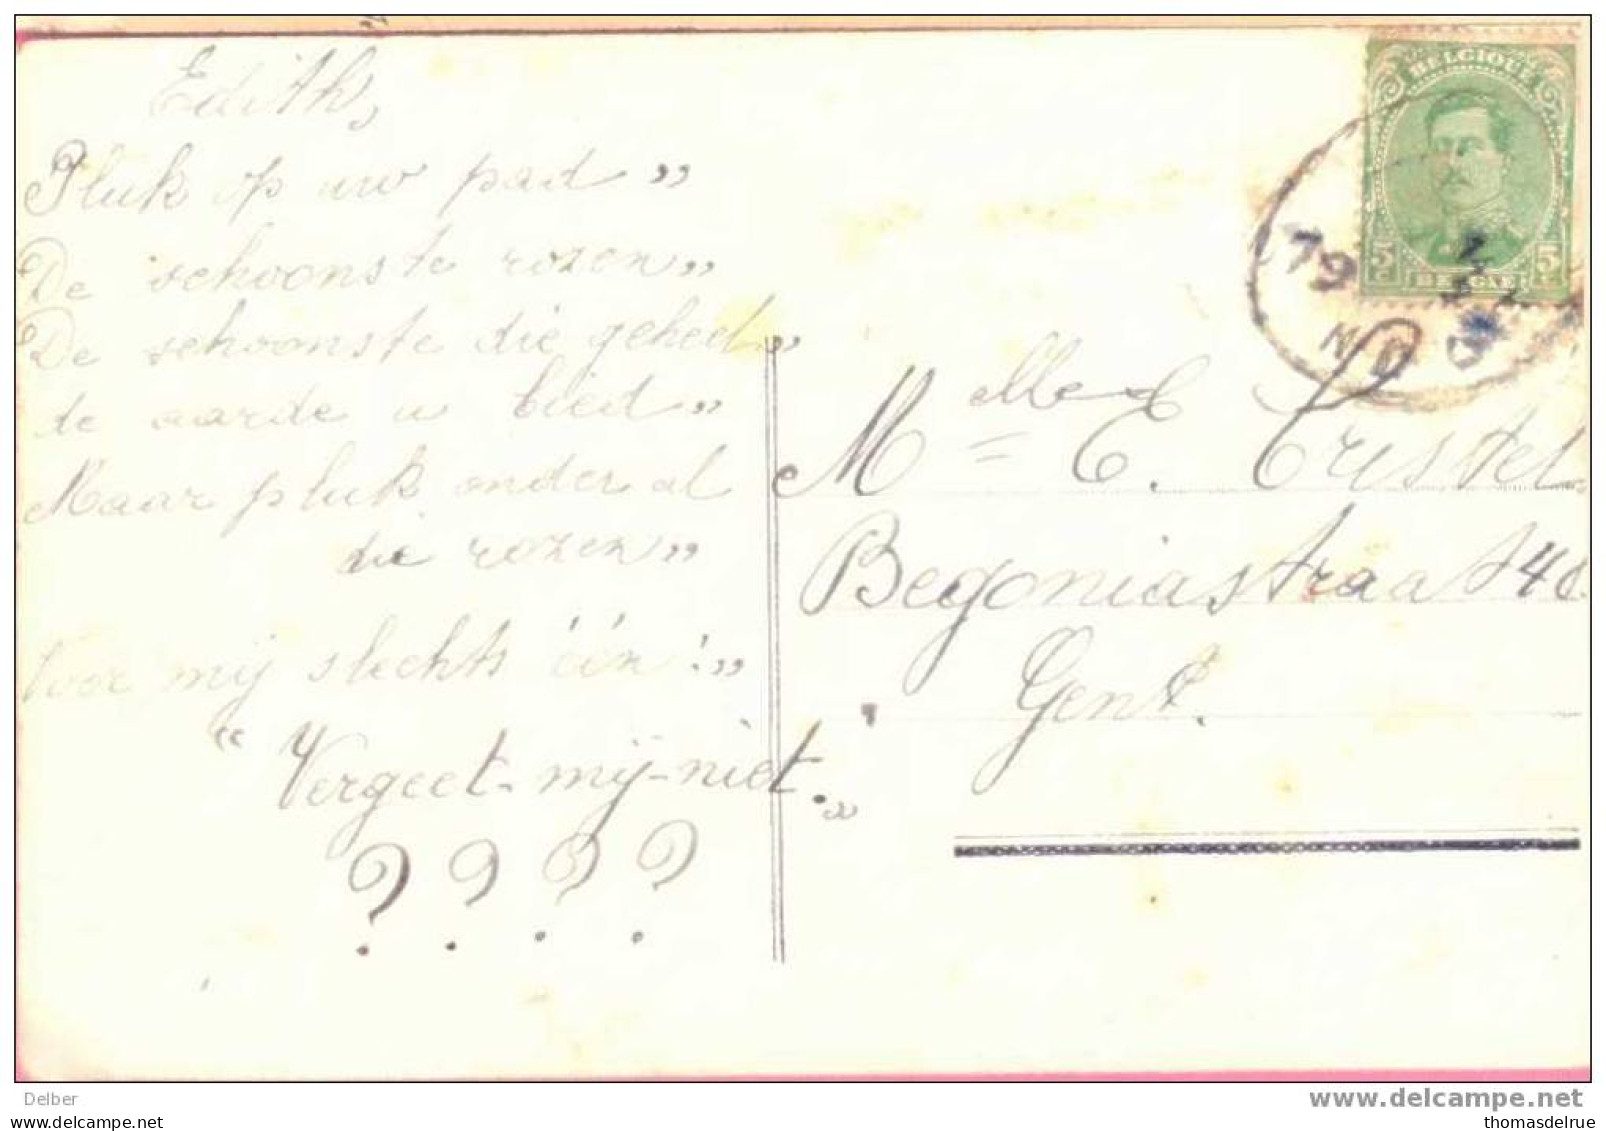 Edith,
Pluk op uw pad "
De schoonste rozen "
De schoonste die geheel "
de aarde u bied "
Maar pluk onder al
die rozen "
Voor mij slechts één ! "
" Vergeet-mij-niet. "
? ? ? ?
BELGIQUE
5c 5c
BELGIË
19
Melle E. Cristel
Begoniastraat 48
Gent.
Delber
www.delcampe.net
thomasdelrue